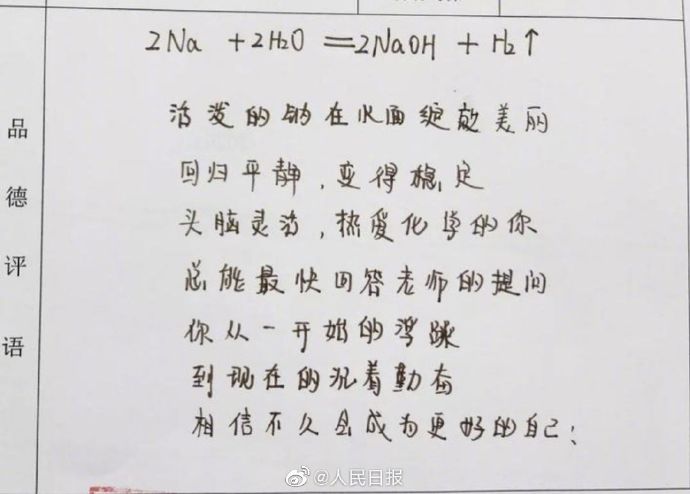 2Na + 2H2O ══ 2NaOH + H2↑
品德评语
活泼的钠在水面绽放美丽
回归平静，变得稳定
头脑灵活，热爱化学的你
总能最快回答老师的提问
你从一开始的浮躁
到现在的沉着勤奋
相信不久会成为更好的自己；
@人民日报